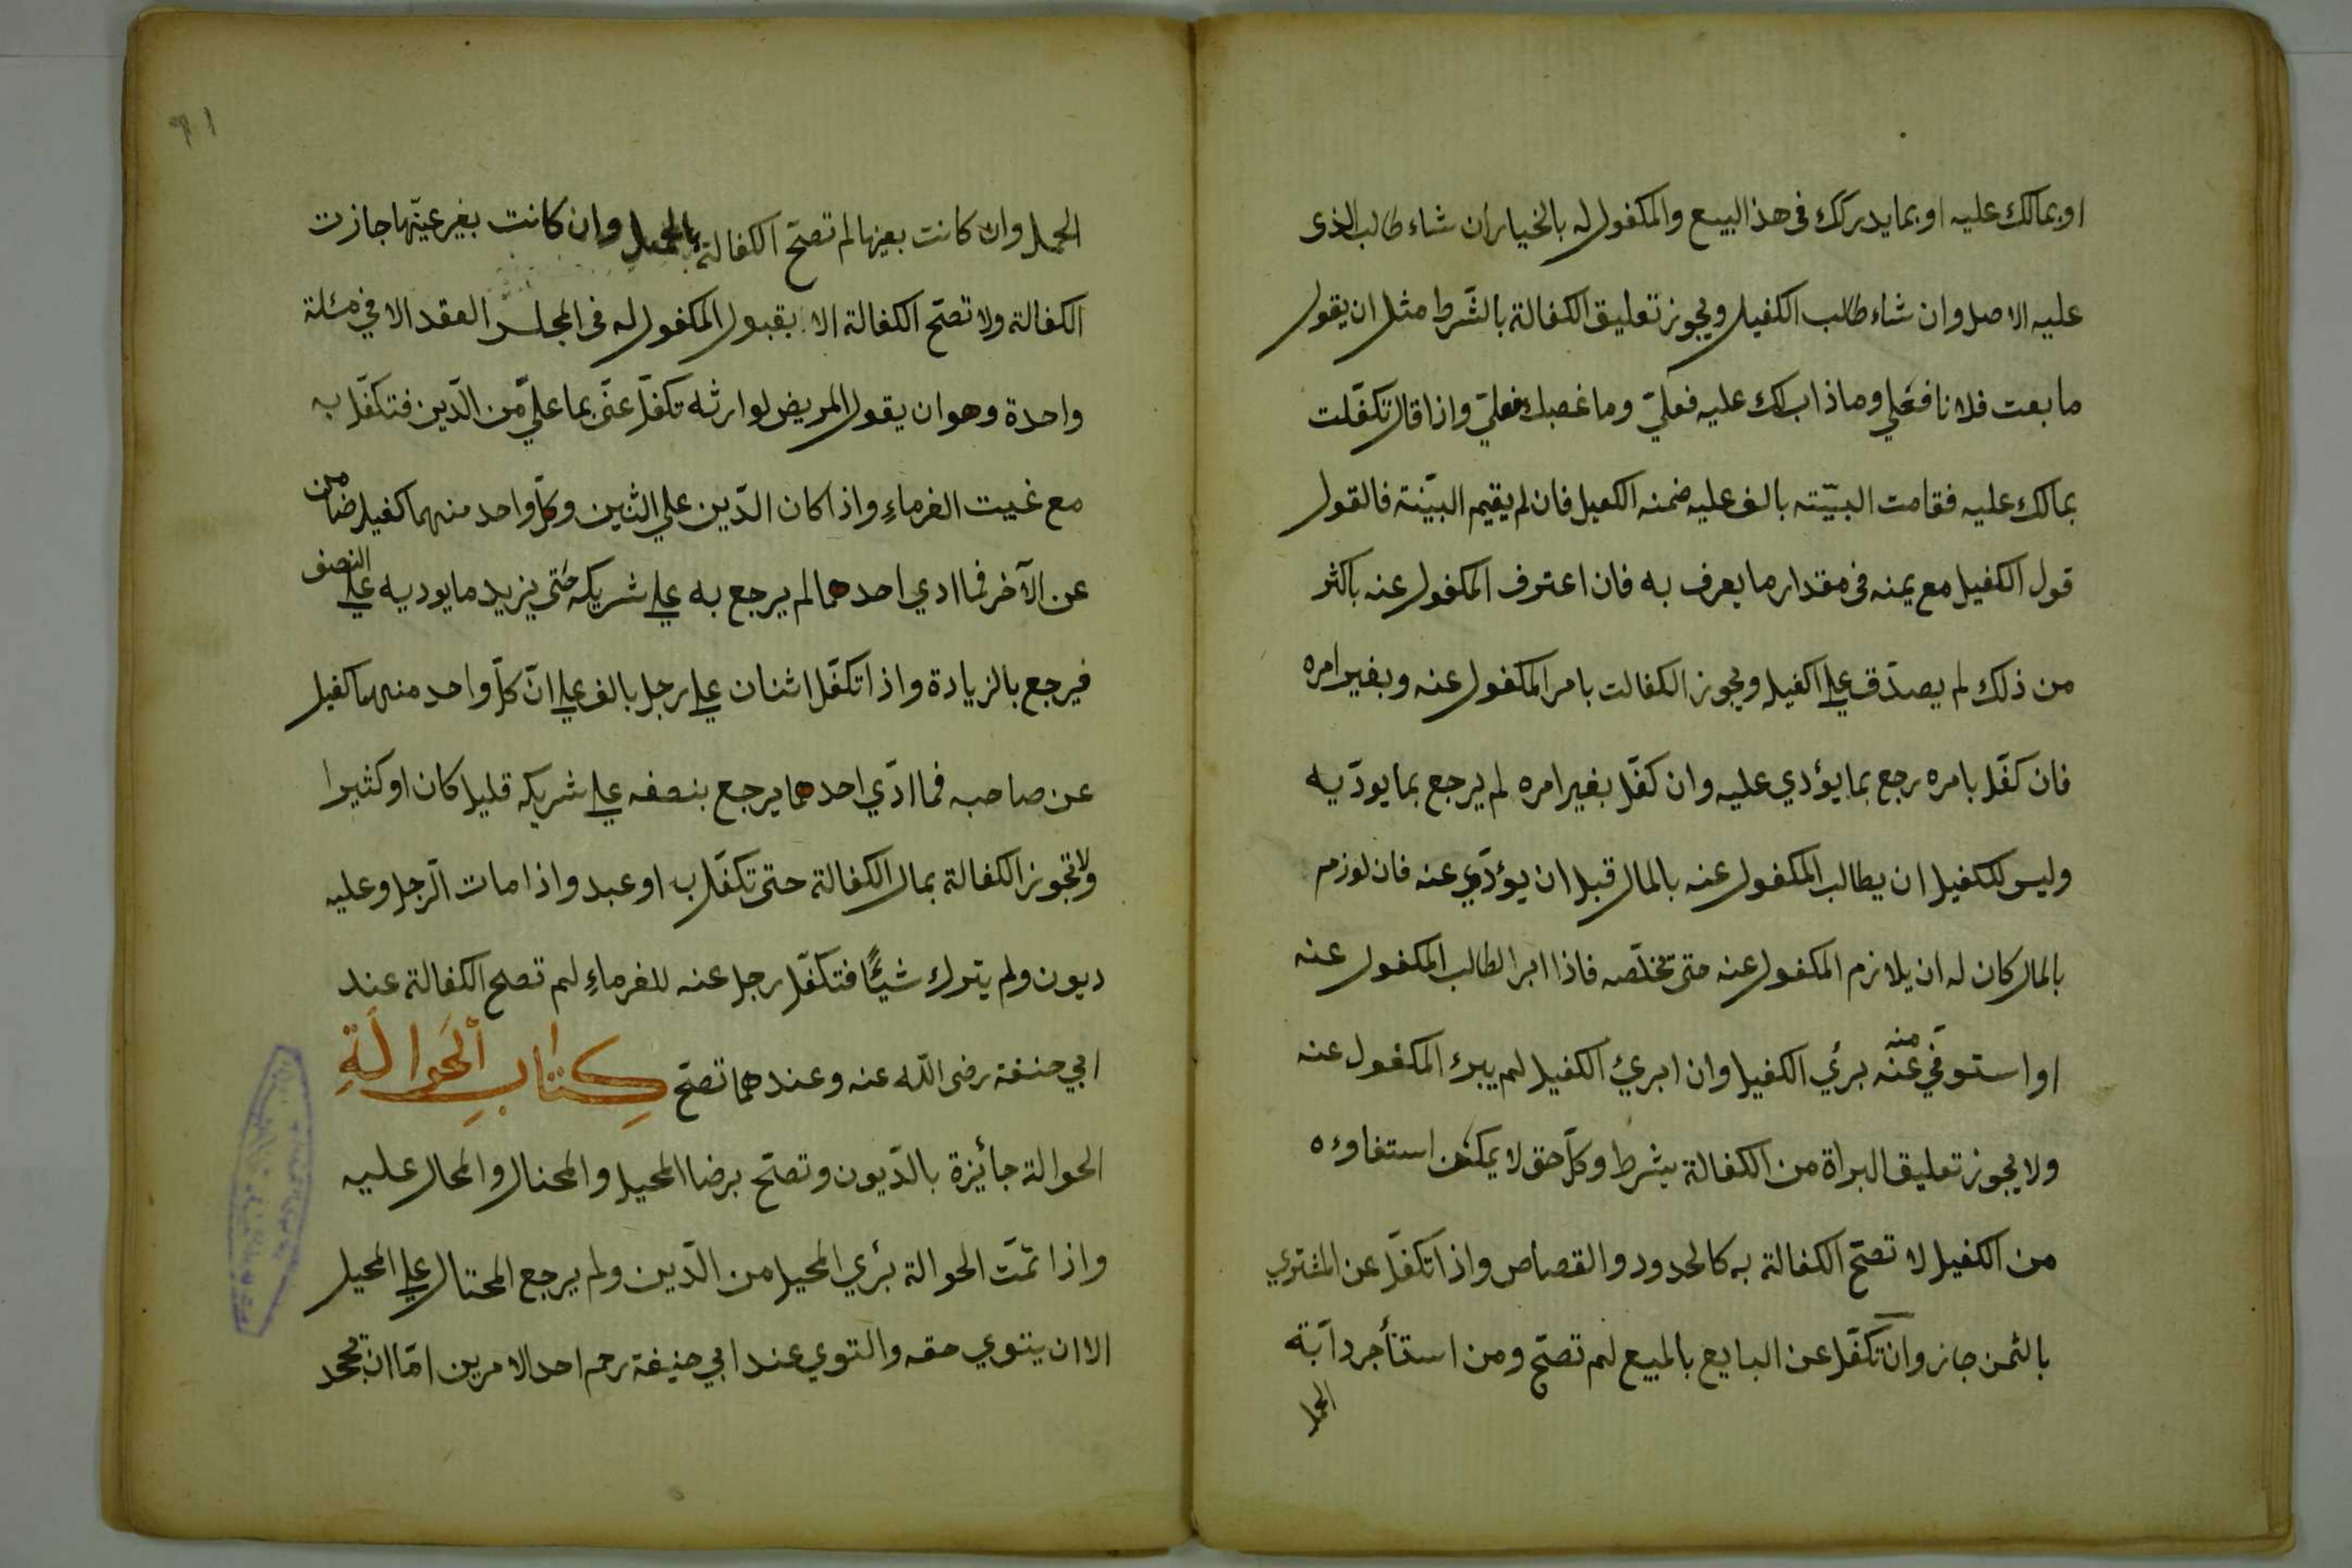 او بمالك عليه او بما يدركك فى هذ البيع والمكفول له بالخيار ان شاء طالب الذى
عليه الاصل وان شاء طالب الكفيل ويجوز تعليق الكفالة بالشّرط مثل ان يقول
ما بعت فلانا فعلي وما ذاب لك عليه فعليّ وما غصبك فعليّ واذا قال تكفّلت
بمالك عليه فقامت البيّنه بالف عليه ضمنه الكفيل فان لم يقيم البيّنة فالقول
قول الكفيل مع يمنه فى مقدار ما يعرف به فان اعترف المكفول عنه باكثر
من ذلك لم يصدّق على الكفيله ويجوز الكفالت بامر المكفول عنه وبغير امره
فان كفّل بامره رجع بما يؤدي عليه وان كفّل بغير امره لم يرجع بما يودّيه
وليس للكفيل ان يطالب المكفول عنه بالمال قبل ان يؤدّي عنه فان لوزم
بالمال كان له ان يلازم المكفول عنه حتى تخلّصه فاذا ابرا الطالب المكفول عنه
او استوفي عنه منه برئ الكفيل وان ابرئ الكفيل لم يبرك المكفول عنه
ولا يجوز تعليق البراة من الكفالة بشرط وكلّ حق لا يمكن استفاوءه
من الكفيل لا تصحّ الكفالة به كالحدود والقصاص واذا تكفّل عن المشتري
بالثمن جاز وان تكفّل عن البايع بالمبيع لم تصحّ ومن استأجر دآبّة
الحمل
٩١
الحمل وان كانت بعينها لم تصحّ الكفالة بالحمل وان كانت بغير عينّها جازت
الكفالة ولا تصحّ الكفالة الا بقبول المكفول له فى المجلس العقد الا في مئلة
واحدة وهو ان يقول المريض لوارثه تكفّل عنّى بما عليّ من الدّين فتكفّل به
مع غيبت الغرماءِ واذا كان الدّين علي اثنين وكلّ واحد منهما كفيل ضامن
عن الآخر فما ادي احدهما لم يرجع به علي شريكه حتى يزيد ما يوديه على النصف
فيرجع بالزيادة واذا تكفّل اثنان علي رجل بالف علي انّ كلّ واحد منهما كفيل
عن صاحبه فما ادّي احدهما يرجع بنصفه علي شريكه قليل كان او كثيرا
ولا تجوز الكفالة بمال الكفالة حتى تكفّل به او عبد واذا مات الرّجل وعليه
ديون ولم يترك شيئًا فتكفّل رجل عنه للغرماءِ لم تصلح الكفالة عند
ابي حنيفة رضى اللّه عنه وعندهما تصحّ كِتَابِ اْلحَوَالَةِ
الحوالة جائزة بالدّيون وتصحّ برضا المحيل والمحتال والمحال عليه
واذا تمّت الحوالة برئي المحيل من الدّين ولم يرجع المحتال علي المحيل
الا ان يتوي حقه والتوي عند ابي حنيفة رحم احد الامرين امّا ان تجحد